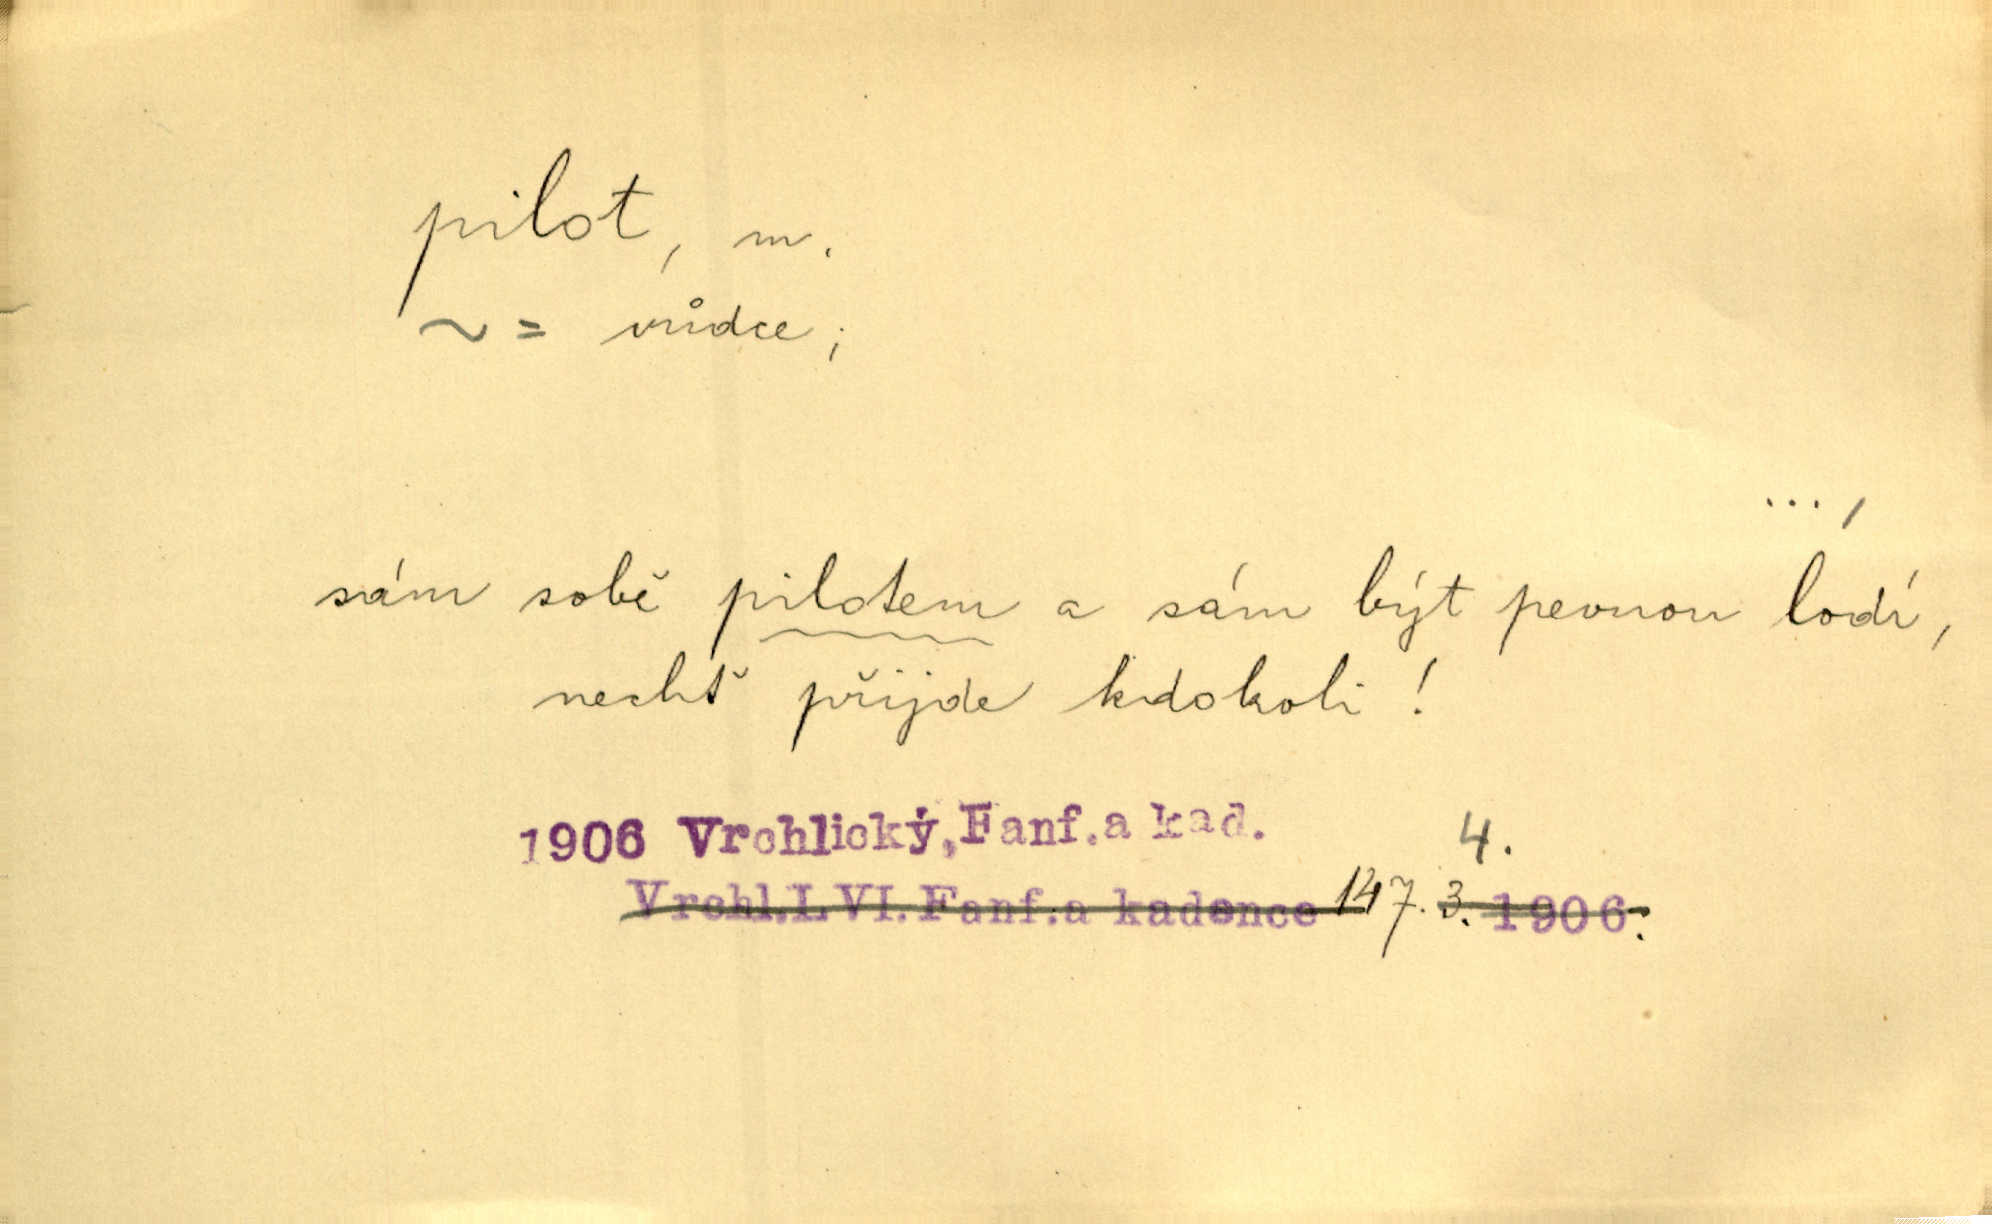 pilot, m.
~ = vůdce;
..., 
sám sobě pilotem a sám být pevnou lodí,
nechť přijde kdokoli!
1906 Vrchlický, Fanf. a kad.
4.
Vrchl. LVI. Fanf. a kadence 147. 3. 1906.